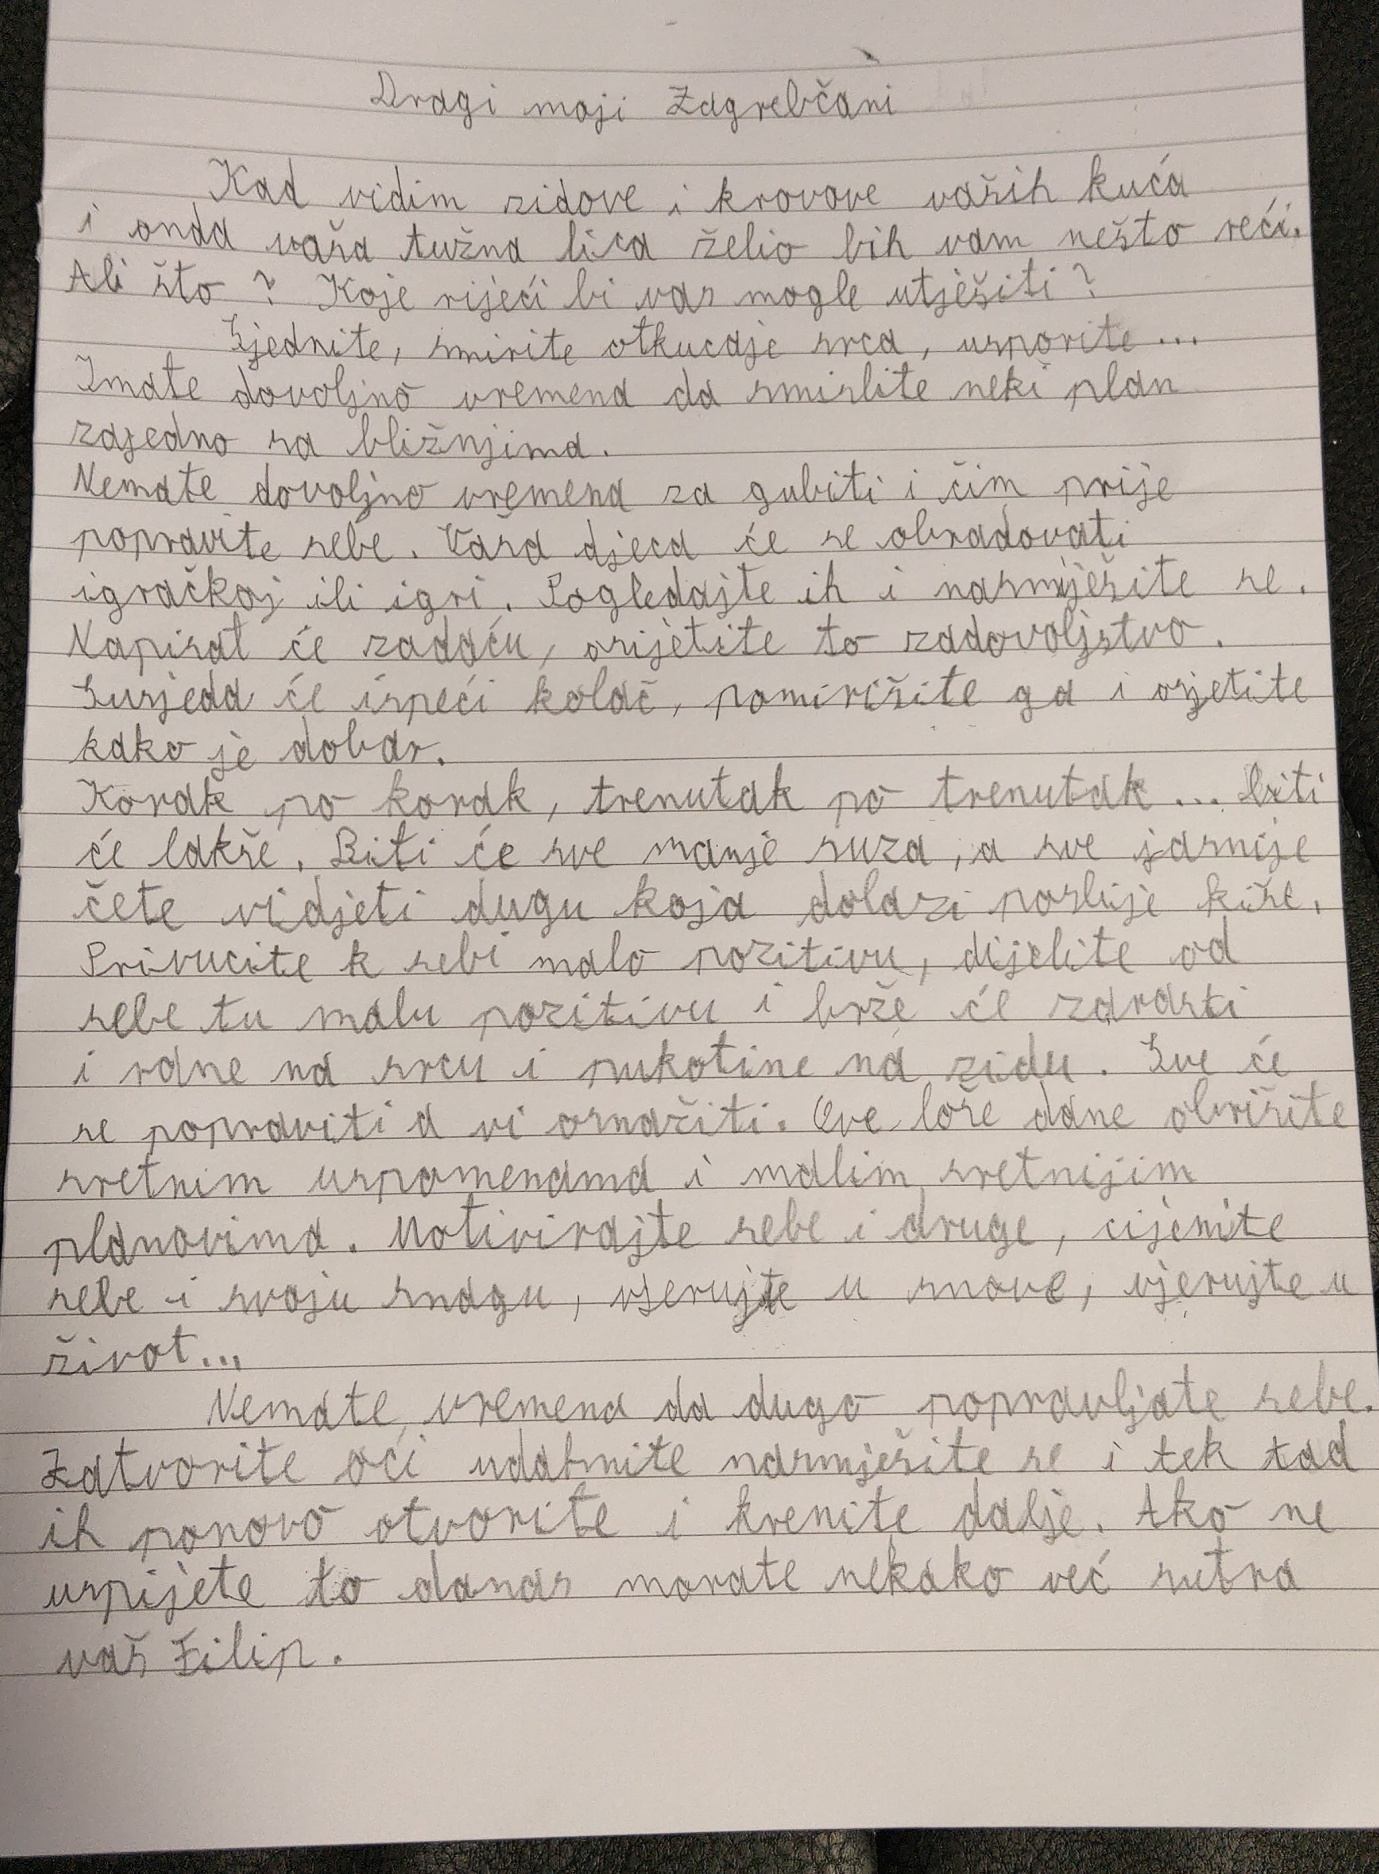 Dragi moji Zagrebčani
Kad vidim zidove i krovove vaših kuća
i onda vaša tužna lica želio bih vam nešto reći.
Ali što? Koje rijeći bi vas mogle utješiti?
Sjednite, smirite otkucaje srca, usporite...
Imate dovoljno vremena da smislite neki plan
zajedno sa bližnjima.
Nemate dovoljno vremena za gubiti i čim prije
popravite sebe. Vaša djeca će se obradovati
igračkoj ili igri. Pogledajte ih i nasmiješite se.
Napisat će zadaću, osijetite to zadovoljstvo.
Susjeda će ispeći kolač, pomirišite ga i osjetite
kako je dobar.
Korak po korak, trenutak po trenutak... Biti
će lakše. Biti će sve manje suza, a sve jasnije
čete vidjeti dugu koja dolazi poslije kiše.
Privucite k sebi malo pozitivu, dijelite od
sebe tu malu pozitivu i brže će zarasti
i rane na srcu i pukotine na zidu. Sve će
se popraviti a vi osnažiti. Ove loše dane obrišite
sretnim uspomenama i malim sretnijim
planovima. Motivirajte sebe i druge, cijenite
sebe i svoju snagu, vjerujte u snove, vjerujte u
život...
Nemate vremena da dugo popravljate sebe.
Zatvorite oći udahnite nasmješite se i tek tad
ih ponovo otvorite i krenite dalje. Ako ne
uspijete to danas morate nekako već sutra
vaš Filip.